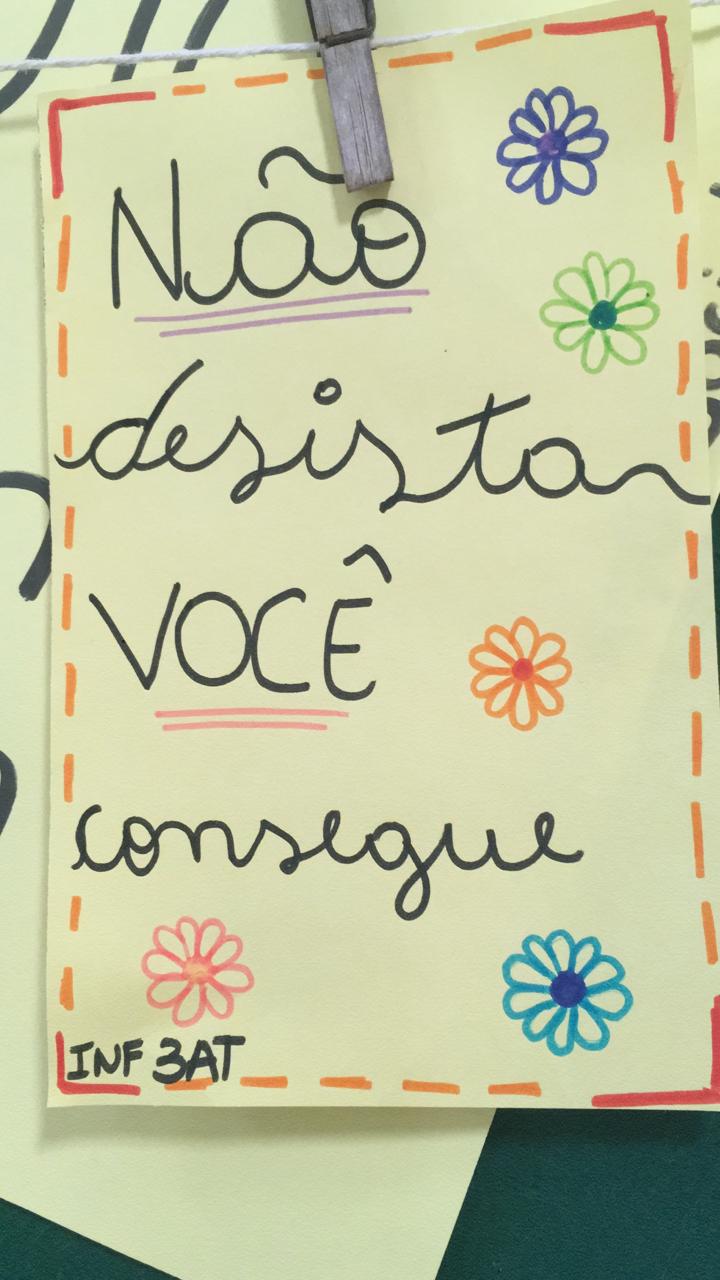 Não
desista
VOCÊ
consegue
INF 3AT